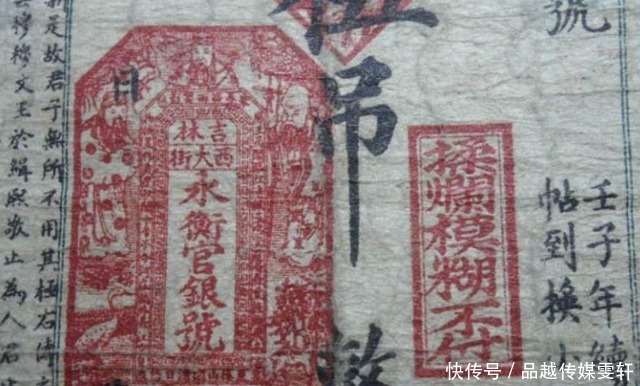 號
壬子年
帖到換
揉爛模糊不付
伍吊
吉林
西大街
永衡官銀號
日
新是故君子無所不用其極右傳
云穆穆文王於緝熙敬止為人君止
快传号 / 品越传媒雯轩